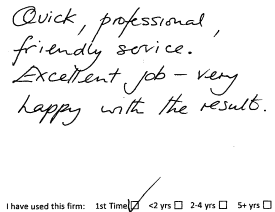 Quick, professional,
friendly service.
Excellent job – very
happy with the result.
I have used this firm: 1st Time ☑ <2 yrs ☐ 2-4 yrs ☐ 5+ yrs ☐